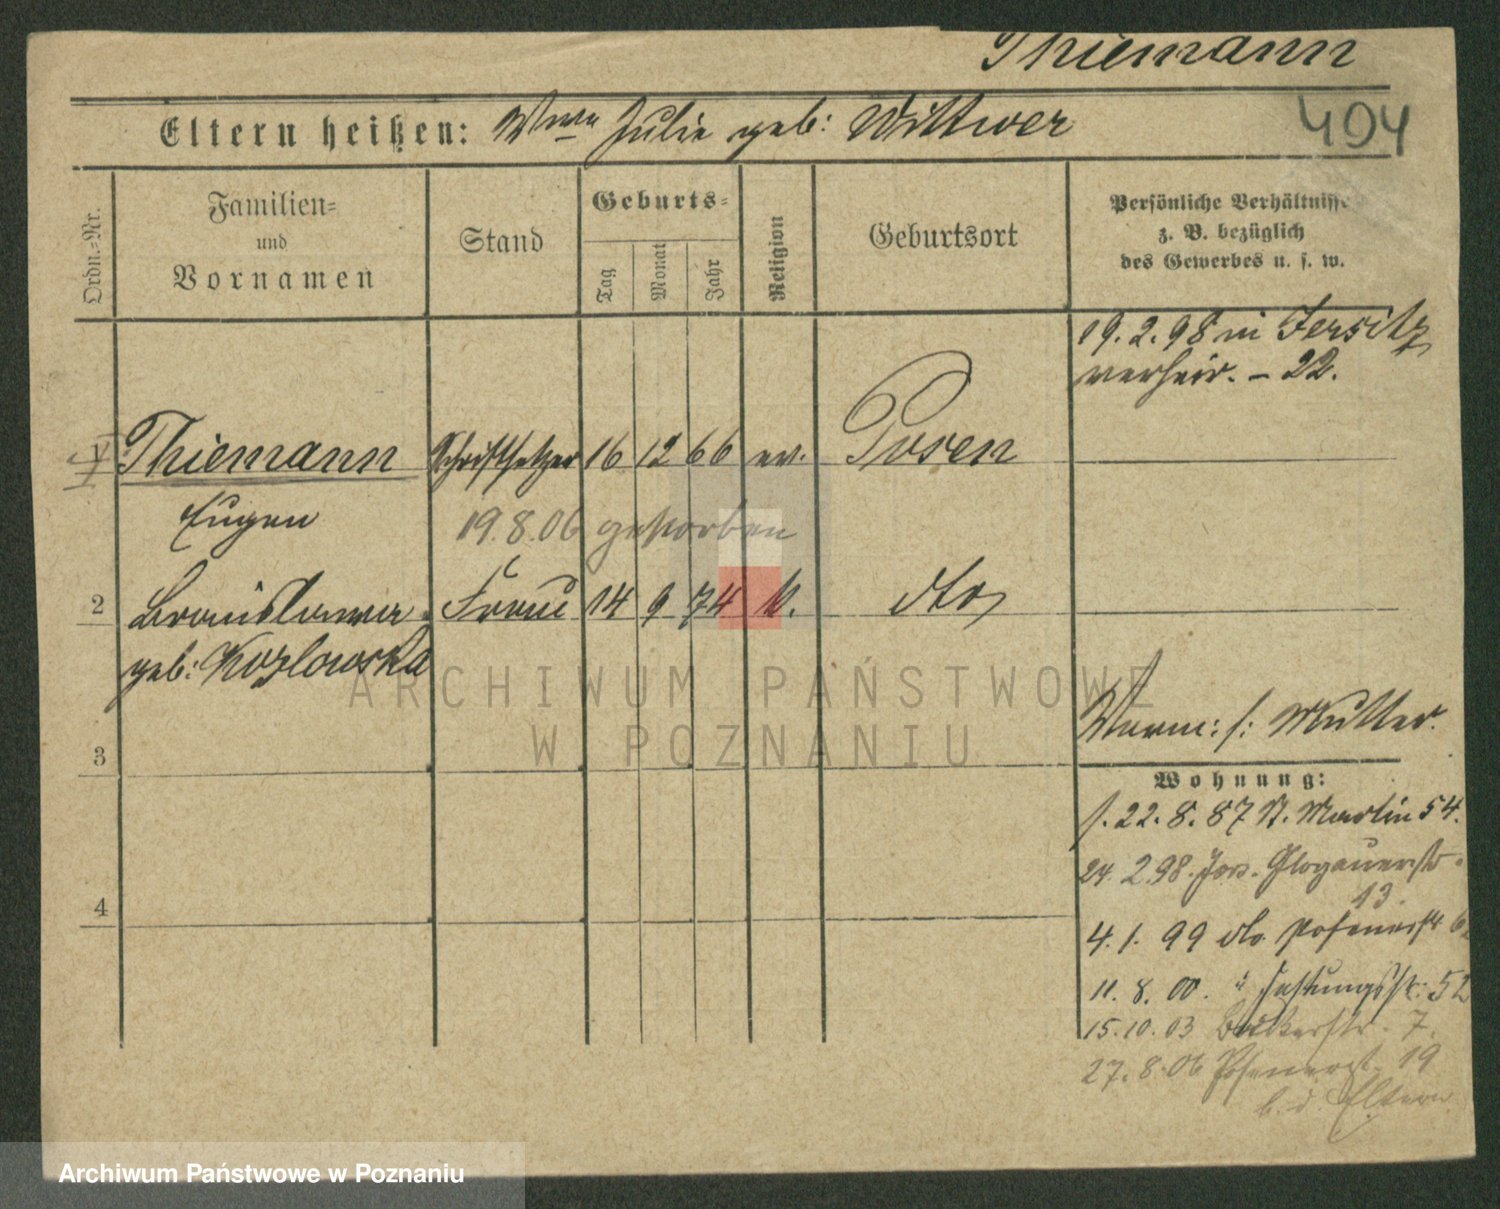 Thiemann
Eltern heißen: Wwe Julie geb: Wittwer
404
Ordn.=Nr.
Familien=
und
Vornamen
Stand
Geburts=
Tag
Monat
Jahr
Religion
Geburtsort
Persönliche Verhältnisse
z. B. bezüglich
des Gewerbes u. s. w.
19.2.98 in Jersitz
verheir. – 22.
1 Thiemann Schriftsetzer 16 12 66 ev. Posen
Eugen
19.8.06 gestorben
2 Bronislawa Frau 14 9 74 k. dto
geb: Kozlowska
3
4
s: Mutter.
Wohnung:
22.8.87 St. Martin 54.
24.2.98 Jers. Glogauerstr.
13.
4.1.99 do. Posenerstr
11.8.00. " Festungsstr: 52
15.10.03 Bäckerstr. 7.
27.8.06 Posenerst. 19
b. d. Eltern
ARCHIWUM PAŃSTWOWE
W POZNANIU
Archiwum Państwowe w Poznaniu